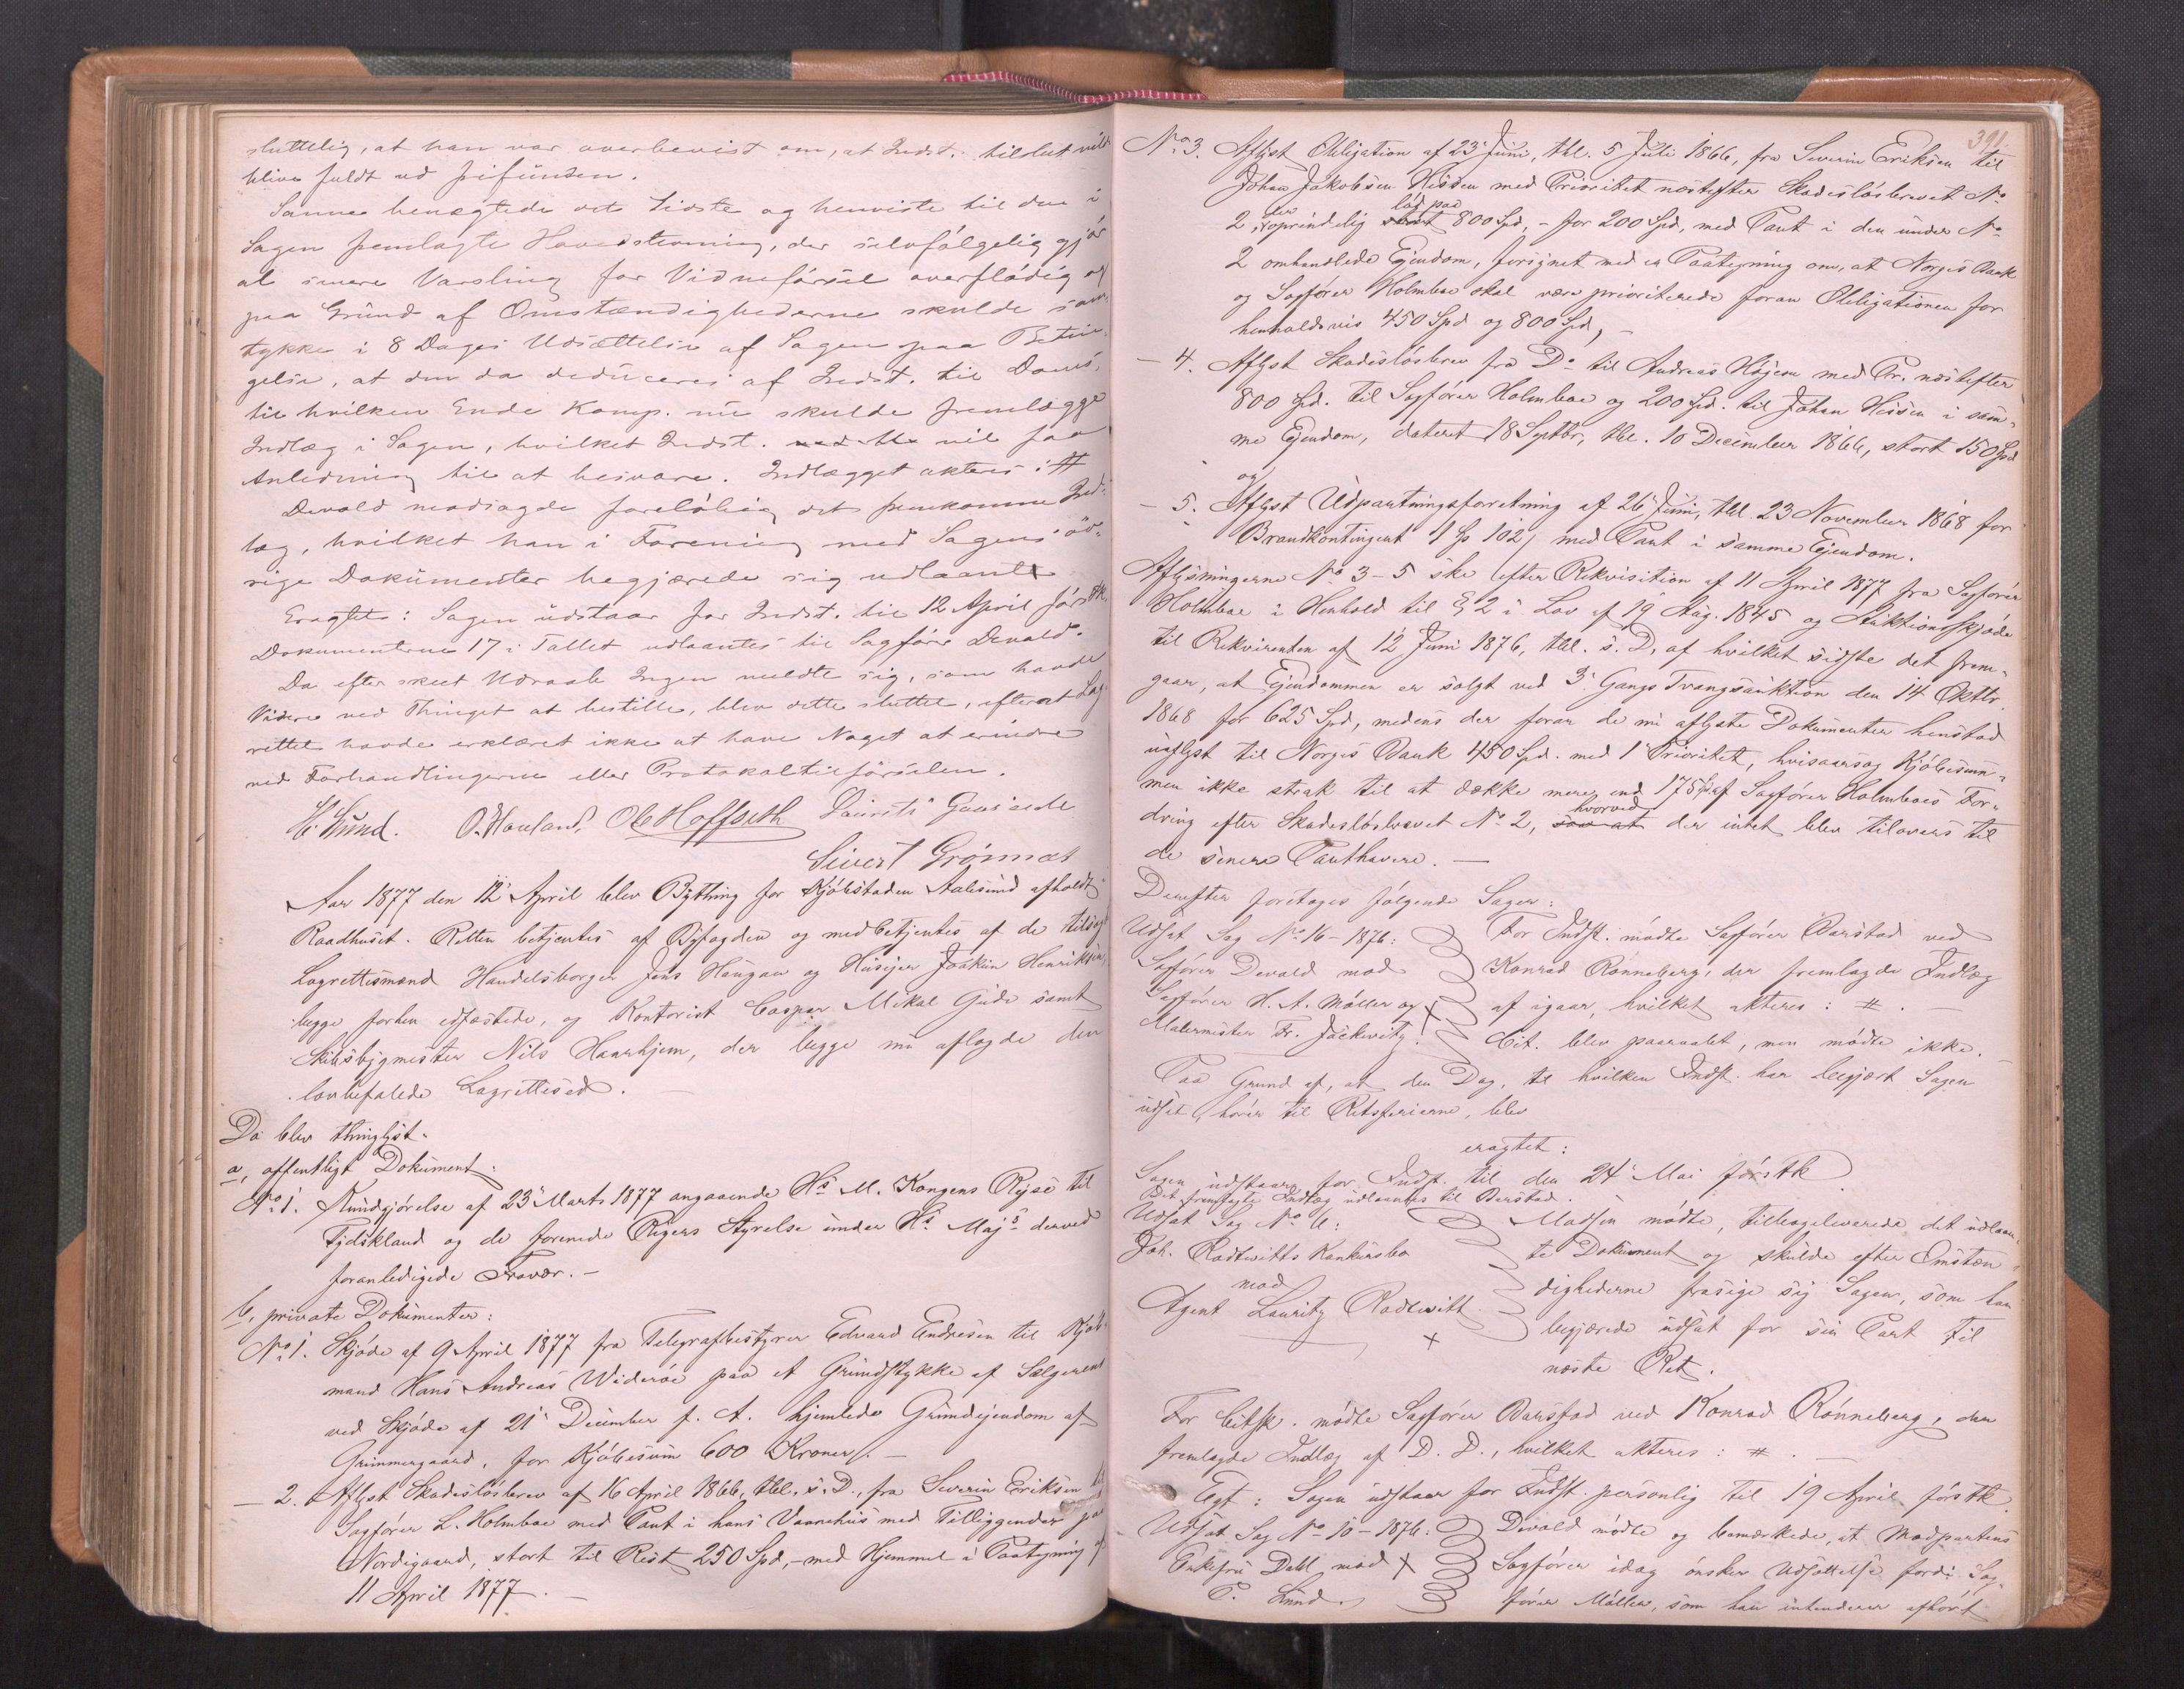 sluttelig, at han var overbevist om, at Indst. tilslut vilde
blive fuldt ud frifunden.
Sanne benægtede det Sidste og henviste til den i
Sagen fremlagte Hovedstevning, der selvfølgelig gjør
al senere Varsling for Vidneførsel overflødig og
paa Grund af Omstændighederne skulde sam-
tykke i 8 Dages Udsættelse af Sagen paa Betin-
gelse, at den da deduceres af Indst. til Doms,
til hvilken Ende Komp. nu skulde fremlægge
Indlæg i Sagen, hvilket Indst. vil faa
Anledning til at besvare. Indlægget akteres: #
Devold modsagde foreløbig det fremkomne Ind-
læg, hvilket han i Forening med Sagens øv-
rige Dokumenter begjærede sig udlaant
Eragtet: Sagen udstaar for Indst. til 12 April førstk.
Dokumenterne 17 i Tallet udlaantes til Sagfører Devold.
Da efter skeet Udraab Ingen meldte sig, som havde
Videre ved Thinget at bestille, blev dette sluttet, efterat Lag-
rettet havde erklæret ikke at have Noget at erindre
ved Forhandlingerne eller Protokoltilførselen.
H. Lund. O. Houland, Ole Hoffseth Laurits Gaasede
Sivert Grønmæt
Aar 1877 den 12 April blev Bything for Kjøbstaden Aalesund afholdt
Raadhuset. Retten betjentes af Byfogden og medbetjentes af de tilsagte
Lagrettesmænd Handelsborger Jens Haugan og Huseier Joakim Henriksen,
begge forhen edfæstede, og Kontorist Caspar Mikal Gude samt
Skibsbygmester Nils Haarhjem, der begge nu aflagde den
lovbefalede Lagrettesed.
Da blev thinglyst.
a, offentligt Dokument:
No 1. Kundgjørelse af 23 Marts 1877 angaaende Hs M. Kongens Rejse til
Tydskland og de forenede Rigers Styrelse under Hs Majs derved
foranledigede Fravær.-
b, private Dokumenter:
No 1. Skjøde af 9 April 1877 fra Telegrafbestyrer Edvard Endresen til Kjøb-
mand Hans Andreas Widerøe paa et Grundstykke af Sælgerens
ved Skjøde af 21 December f. A. hjemlede Grundejendom af
Grimmergaard, for Kjøbesum 600 Kroner.-
- 2. Aflyst Skadesløsbrev af 16 April 1866, thl. s. D., fra Severin Eriksen til
Sagfører L. Holmboe med Pant i hans Vaanehus med Tilliggender paa
Nørdigaard, stort til Rest 250 Spd,- med Hjemmel i Paategning af
11 April 1877.
391.
No 3. Aflyst Obligation af 23 Juni, thl. 5 Juli 1866, fra Severin Eriksen til
Johan Jakobsen Hessen med Prioritet næstefter Skadesløsbrevet No
2, der oprindelig lød paa 800 Spd, - for 200 Spd, med Pant i den under No
2 omhandlede Ejendom, forsynet med en Paategning om, at Norges Bank
og Sagfører Holmboe skal være prioriterede foran Obligationen for
henholdsvis 450 Spd og 800 Spd,-
- 4. Aflyst Skadesløsbrev fra Do til Andreas Høgem med Pr. næstefter
800 Spd. til Sagfører Holmboe og 200 Spd. til Johan Hessen i sam-
me Ejendom, dateret 18 Septbr, thl. 10 December 1866, stort 150 Spd
og
- 5. Aflyst Udpantningsforretning af 26 Juni, thl 23 November 1868 for
Brandkontingent med Pant i samme Ejendom.
Aflysningerne No 3-5 ske efter Rekvisition af 11 April 1877 fra Sagfører
Holmboe i Henhold til § 2 i Lov af 19 Aug. 1845 og Auktionsskjøde
til Rekvirenten af 12 Juni 1876, thl. s. D, af hvilket sidste det frem-
gaar, at Ejendommen er solgt ved 3 Gangs Tvangsauktion den 14 Oktbr
1868 for 625 Spd, medens der foran de nu aflyste Dokumenter henstod
uaflyst til Norges Bank 450 Spd. med 1 Prioritet, hvisaarsag Kjøbesum-
men ikke strak til at dække mere end 175 Spd af Sagfører Holmboes For-
dring efter Skadesløsbrevet No 2, hvorved der intet blev tilovers til
de senere Panthavere.-
Derefter foretoges følgende Sager:
Udsat Sag No 16-1876:
Sagfører Devold mod
Sagfører H. A. Møller og
Malermester Fr. Jackwitz.
For Indst. mødte Sagfører Barstad ved
Konrad Rønneberg, der fremlagde Indlæg
af igaar, hvilket akteres: #.-
Cit. blev paaraabt, men mødte ikke.
Paa Grund af, at den Dag, til hvilken Indst. har begjært Sagen
udsat, hører til Retsferierne, blev
eragtet:
Sagen udstaar for Indst. til den 24 Mai førstk
Det fremlagte Indlæg udlaantes til Barstad.
Udsat Sag No 6:
Joh. Rødtwitts Konkursbo
mod
Agent Lauritz Rødtwitt
Madsen mødte, tilbageleverede det udlaan-
te Dokument og skulde efter Omstæn-
dighederne frasige sig Sagen, som han
begjærede udsat for sin Part til
næste Ret.
For Citst. mødte Sagfører Barstad ved Konrad Rønneberg, der
fremlagde Indlæg af D. D., hvilket akteres: #.
Egt: Sagen udstaar for Indst. personlig til 19 April førstk
Udsat Sag No 10-1876.
Enkefru Dahl mod
P. Lund.
Devold mødte og bemærkede, at Modpartens
Sagfører idag ønsker Udsættelse fordi Sag-
fører Møller, som han intenderer afhørt